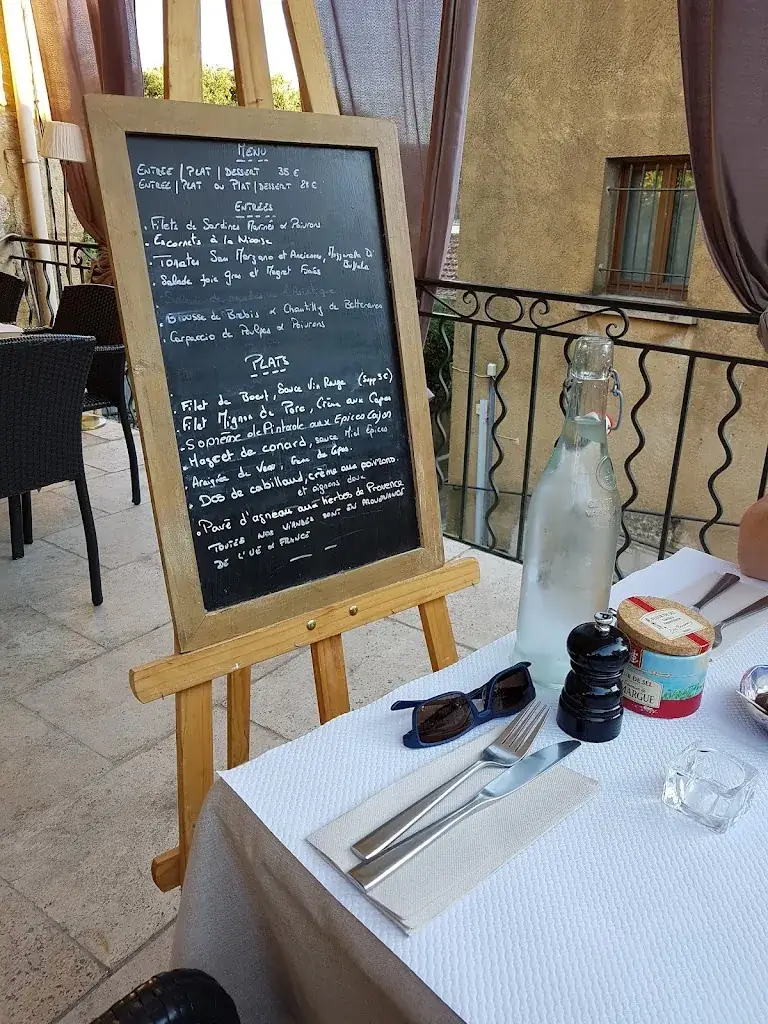 MENU
ENTREE | PLAT | DESSERT 35 €
ENTREE | PLAT OU PLAT | DESSERT 28 €
ENTREES
. Filets de Sardines Marinés & Poivrons
. Encornets à la Niçoise
. TOMATES San Marzano et Anciennes, Mozzarella Di
Buffala
. Salade foie Gras et Magret Fumés
. Brousse de Brebis & Chantilly de Betteraves
. Carpaccio de Poulpes & Poivrons
PLATS
. Filet de Boeuf, Sauce Vin Rouge (Supp 5 €)
. Filet Mignon de Porc, Crème aux Cèpes
. Suprême de Pintade aux Epices Cajun
. Magret de canard, sauce Miel Epices
. Araignée de Veau, de Cèpes.
. Dos de cabillaud, crème aux poivrons
et oignons doux
. Pavé d'agneau aux herbes de Provence
TOUTES NOS VIANDES SONT EN PROVENANCE
DE L'UE & FRANCE
DE SEL
MARGUE